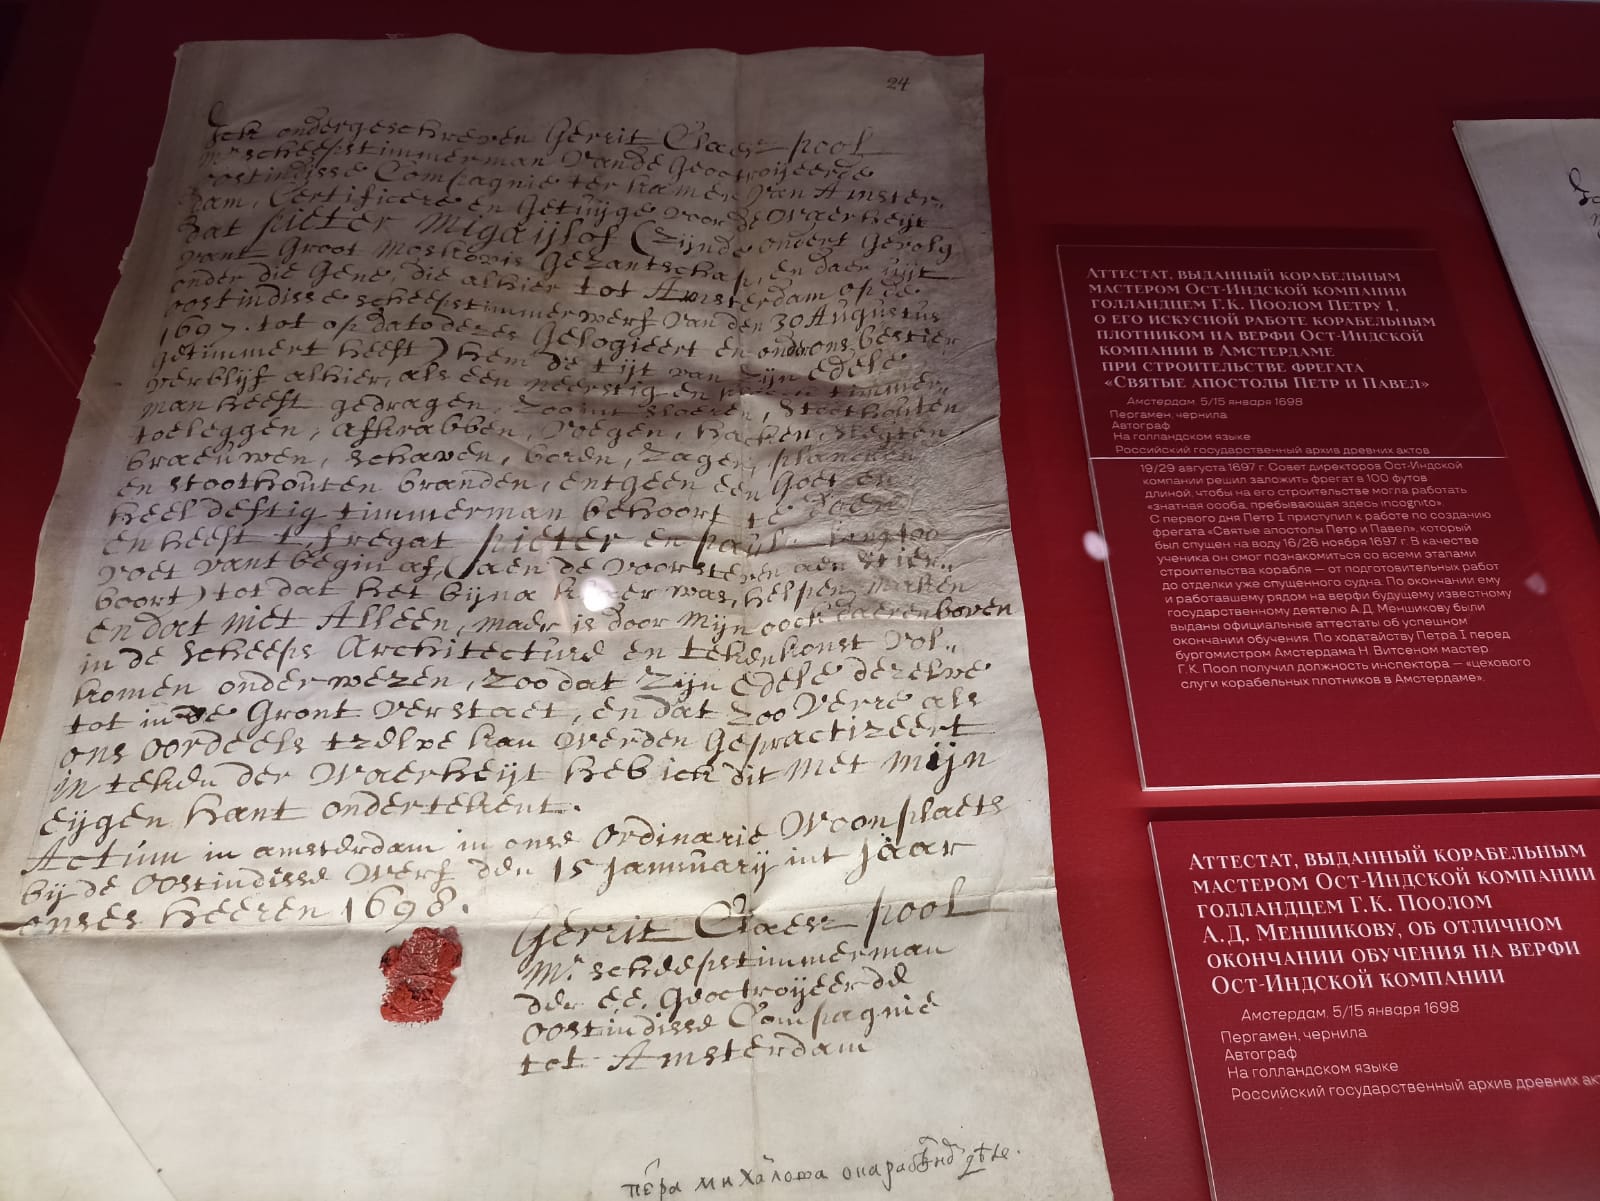 24
Ick ondergeschreven Gerrit Claesz pool
Mr scheepstimmerman vande Geoctroyeerde
oostindisse Compagnie ter kamer van Amster„
dam, Certificere en Getuijge voor de Waerheijt
dat pieter Migaijlof (zijnde onder t Gevolg
vant Groot Moskovis Gezantschap, en daer uijt
onder die Gene, die alhier tot Amsterdam op de
oostindisse scheepstimmerwerf van den 30 Augustus
1697. tot op dato dezes Gelogieert en onder ons bestier
getimmert heeft) hem de tijt van zijn edele
verblijf alhier, als een neerstig en timmer„
man heeft gedragen, zoo int vloeren, stoothouten
toeleggen, afkrabben, voegen, hacken,
braeuwen, schaven, boren, zagen, plancken
en stoothouten branden, entgeen een Goet en
heel deftig timmerman behoort te doen
en heeft t fregat pieter en paul, lang 100
voet vant begin af, (aen de voorsteven aen stier„
boort) tot dat het bijna klaer was, helpen maken
en dat niet Alleen, maer is door mijn oock daerenboven
in de scheeps Architecture en tekenkonst vol„
komen onderwezen, zoo dat zijn edele dezelve
tot in de Gront verstaet, en dat zoo verre als
ons oordeels tzelve kan werden Gepractizeert
in teken der Waerheijt heb ick dit met mijn
eijgen hant ondertekent.
Actum in amsterdam in onse ordinarie Woonplaets
bij de Oostindisse Werf den 15 Januarij int jaar
onses heeren 1698.
Gerrit Claesz pool
Mr scheepstimmerman
der ee. Geoctroijeerde
oostindisse Compagnie
tot Amsterdam
михалова
Аттестат, выданный корабельным
мастером Ост-Индской компании
голландцем Г.К. Поолом Петру I,
о его искусной работе корабельным
плотником на верфи Ост-Индской
компании в Амстердаме
при строительстве фрегата
«Святые апостолы Петр и Павел»
Амстердам. 5/15 января 1698
Пергамен, чернила
Автограф
На голландском языке
Российский государственный архив древних актов
19/29 августа 1697 г. Совет директоров Ост-Индской
компании решил заложить фрегат в 100 футов
длиной, чтобы на его строительстве могла работать
«знатная особа, пребывающая здесь incognito».
С первого дня Петр I приступил к работе по созданию
фрегата «Святые апостолы Петр и Павел», который
был спущен на воду 16/26 ноября 1697 г. В качестве
ученика он смог познакомиться со всеми этапами
строительства корабля — от подготовительных работ
до отделки уже спущенного судна. По окончании ему
и работавшему рядом на верфи будущему известному
государственному деятелю А.Д. Меншикову были
выданы официальные аттестаты об успешном
окончании обучения. По ходатайству Петра I перед
бургомистром Амстердама Н. Витсеном мастер
Г.К. Поол получил должность инспектора — «цехового
слуги корабельных плотников в Амстердаме».
Аттестат, выданный корабельным
мастером Ост-Индской компании
голландцем Г.К. Поолом
А.Д. Меншикову, об отличном
окончании обучения на верфи
Ост-Индской компании
Амстердам. 5/15 января 1698
Пергамен, чернила
Автограф
На голландском языке
Российский государственный архив древних ак